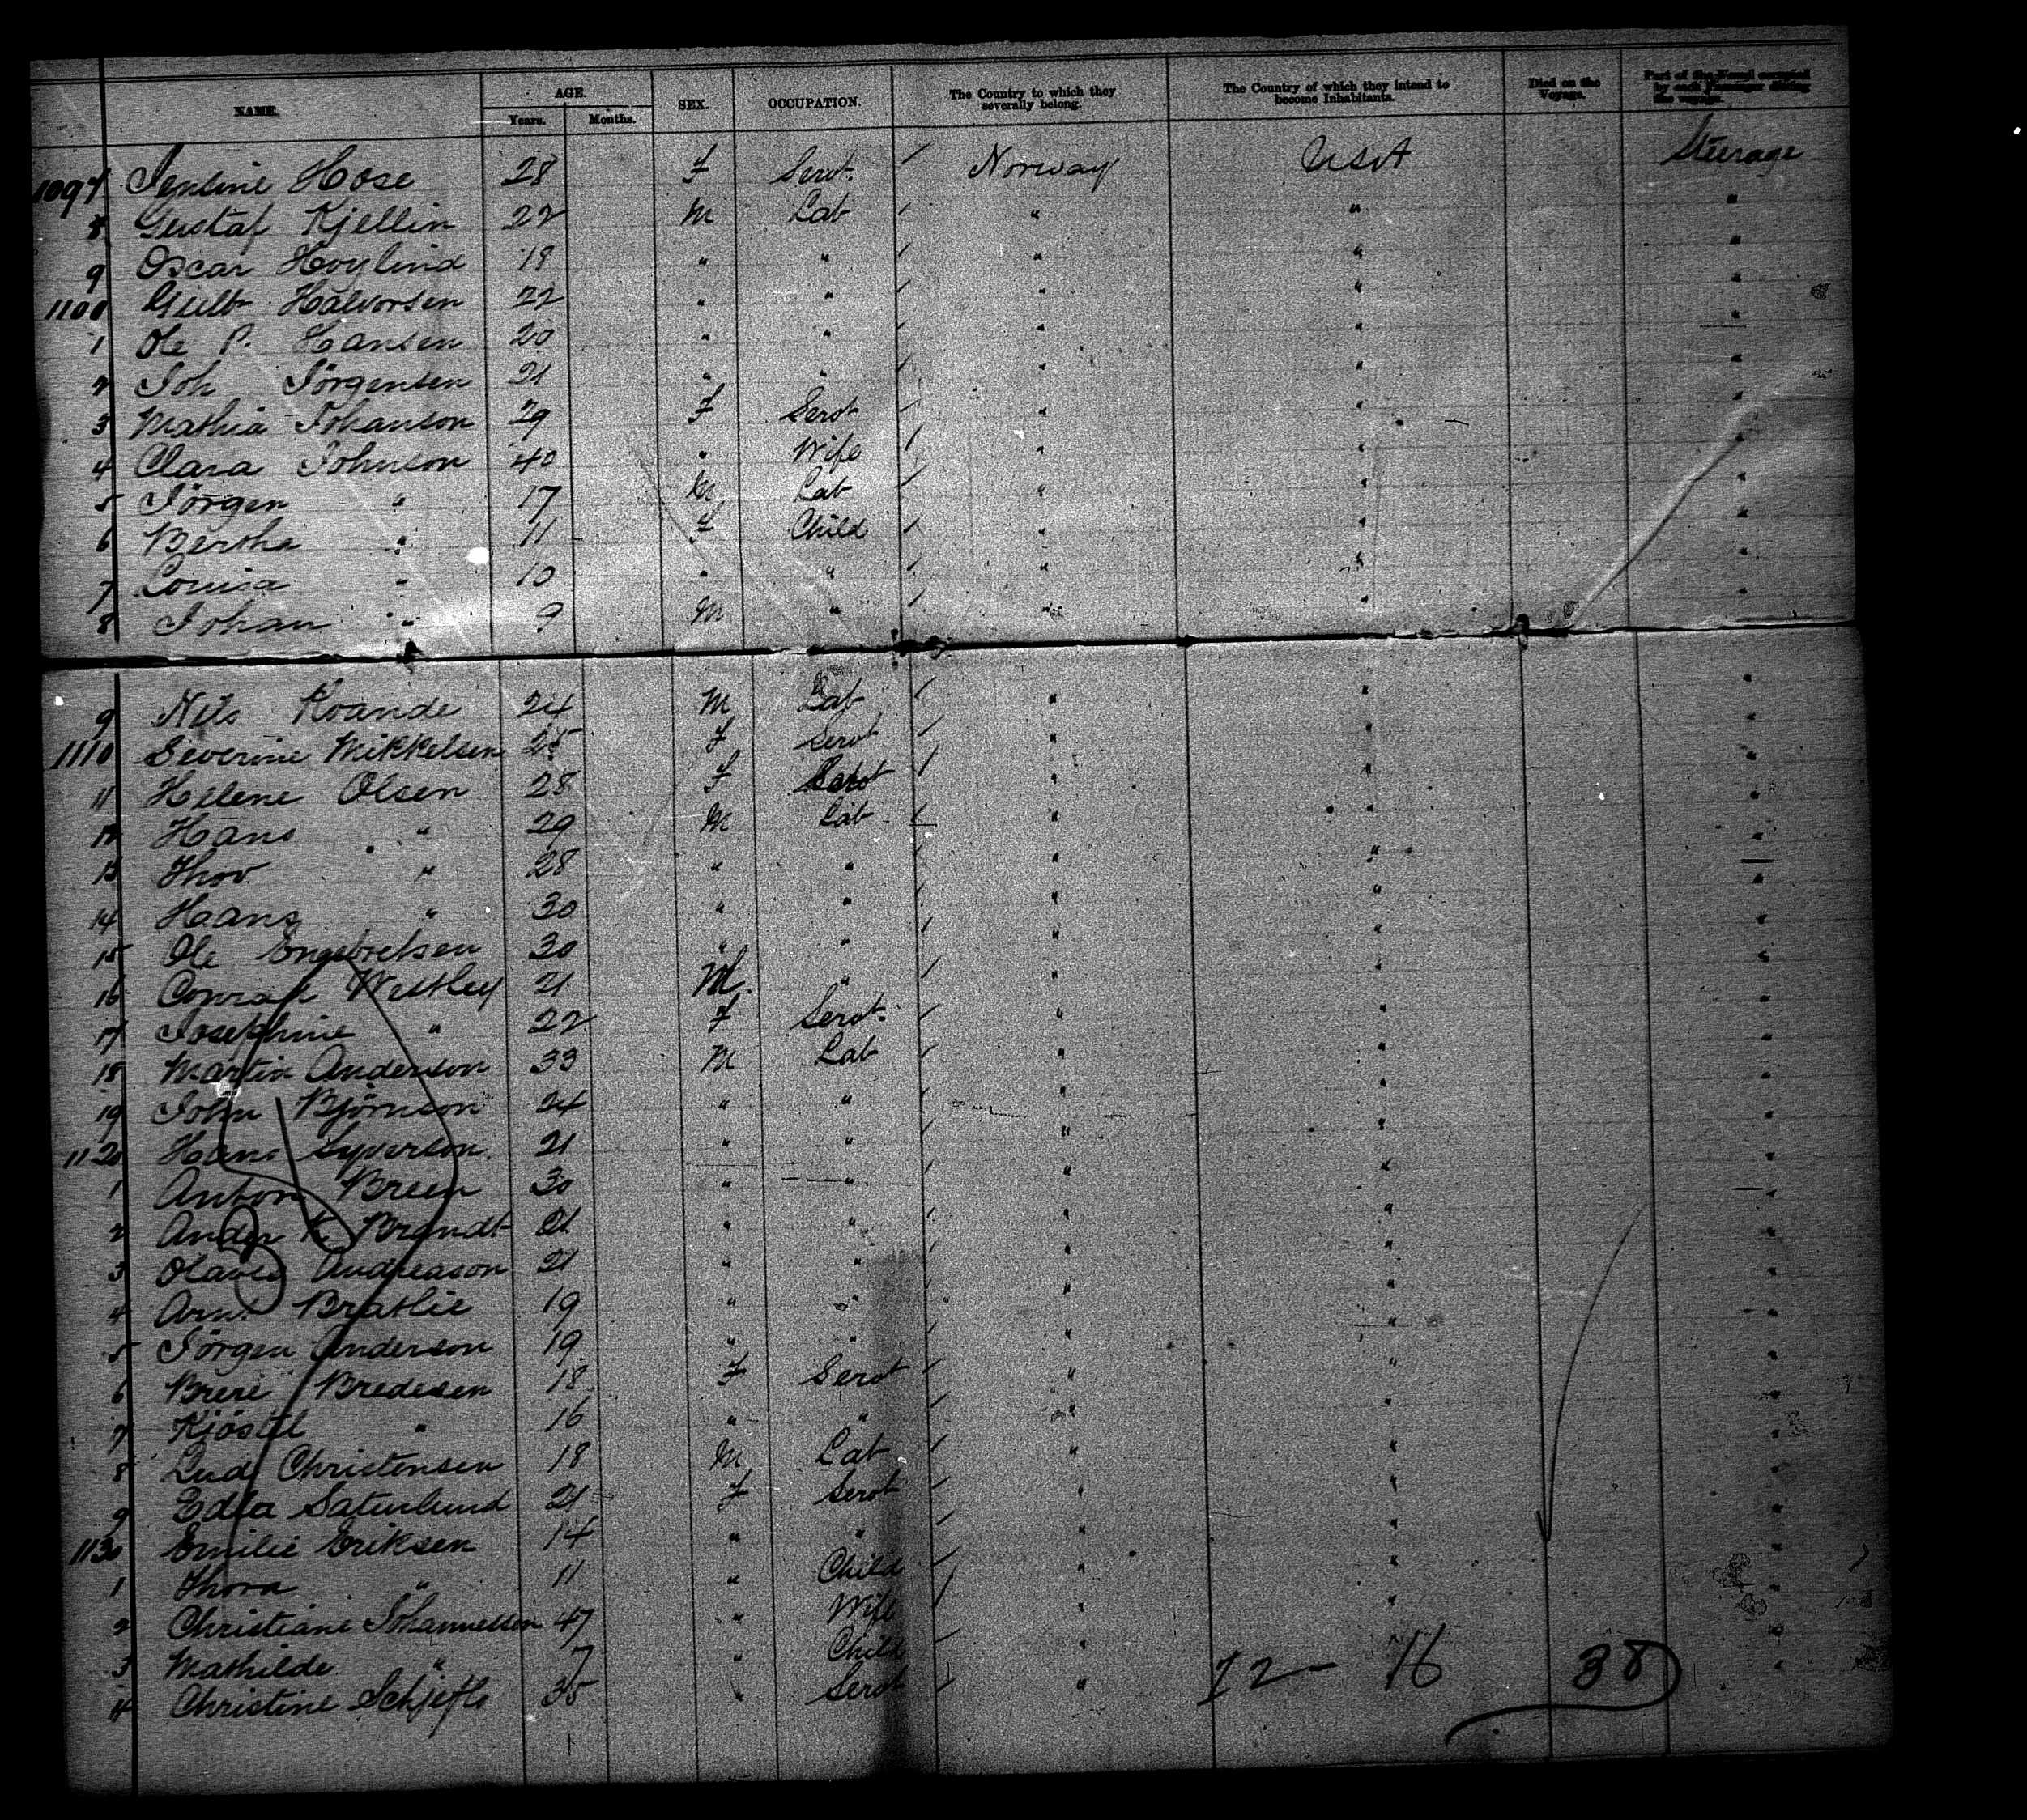 NAME. AGE. SEX. OCCUPATION. The Country to which they severally belong. The Country of which they intend to become Inhabitants. Died on the Voyage. Part of the Vessel occupied by each Passenger during the voyage.
Years. Months.
1097 Hose 28 F Servt. Norway USA Steerage
8 Gustaf Kjellin 22 M Lab " " "
9 Oscar Hoylind 19 " " " " "
1100 Halvorsen 22 " " " " "
1 Ole P. Hansen 20 " " " " "
2 Joh Jörgensen 21 " " " " "
3 Mathia Johanson 29 F Servt " " "
4 Clara Johnson 40 " Wife " " "
5 Jörgen " 17 M Lab " " "
6 Bertha " 11 F Child " " "
7 Louisa " 10 " " " " "
8 Johan " 9 M " " " "
9 Nils Kvande 24 M Lab " " "
1110 Severine Mikkelsen 25 F Servt " " "
11 Helene Olsen 28 F Servt " " "
12 Hans " 29 M Lab " " "
13 Thov " 28 " " " " "
14 Hans " 30 " " " " "
15 Ole Engebretsen 30 " " " " "
16 Conrad Westley 21 M. " " " "
17 Josephine " 22 F Servt. " " "
18 Martin Anderson 33 M Lab " " "
19 John Björnson 24 " " " " "
1120 Hans Syverson 21 " " " " "
1 Anton Breen 30 " " " " "
2 Ander K. Brandt 21 " " " " "
3 Olaves Andreason 21 " " " " "
4 Arn. Brathie 19 " " " " "
5 Jörgen Anderson 19 " " " " "
6 Bredesen 18 F Servt " " "
7 Kjöstel " 16 " " " " "
8 Lud Christensen 18 M Lab " " "
9 Edla 21 F Servt " " "
1130 Emilie Eriksen 14 " " " " "
1 Thora " 11 " Child " " "
2 Christiane Johannessen 47 " Wife " " "
3 Mathilde " 7 " Child " " "
4 Christine 35 " Servt " "
38